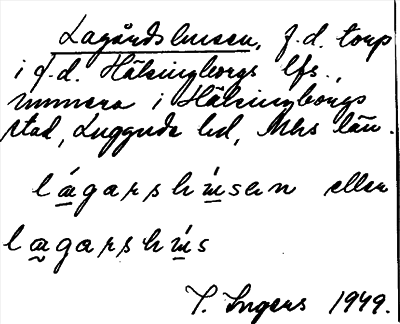 Lagårdshusen, f.d. torp
i f.d. Hälsingborgs lfs.,
numera i Hälsingborgs
stad, Luggude hd, Mhs län.
lágarshúsan eller
lagarshús
I. Ingers 1949.